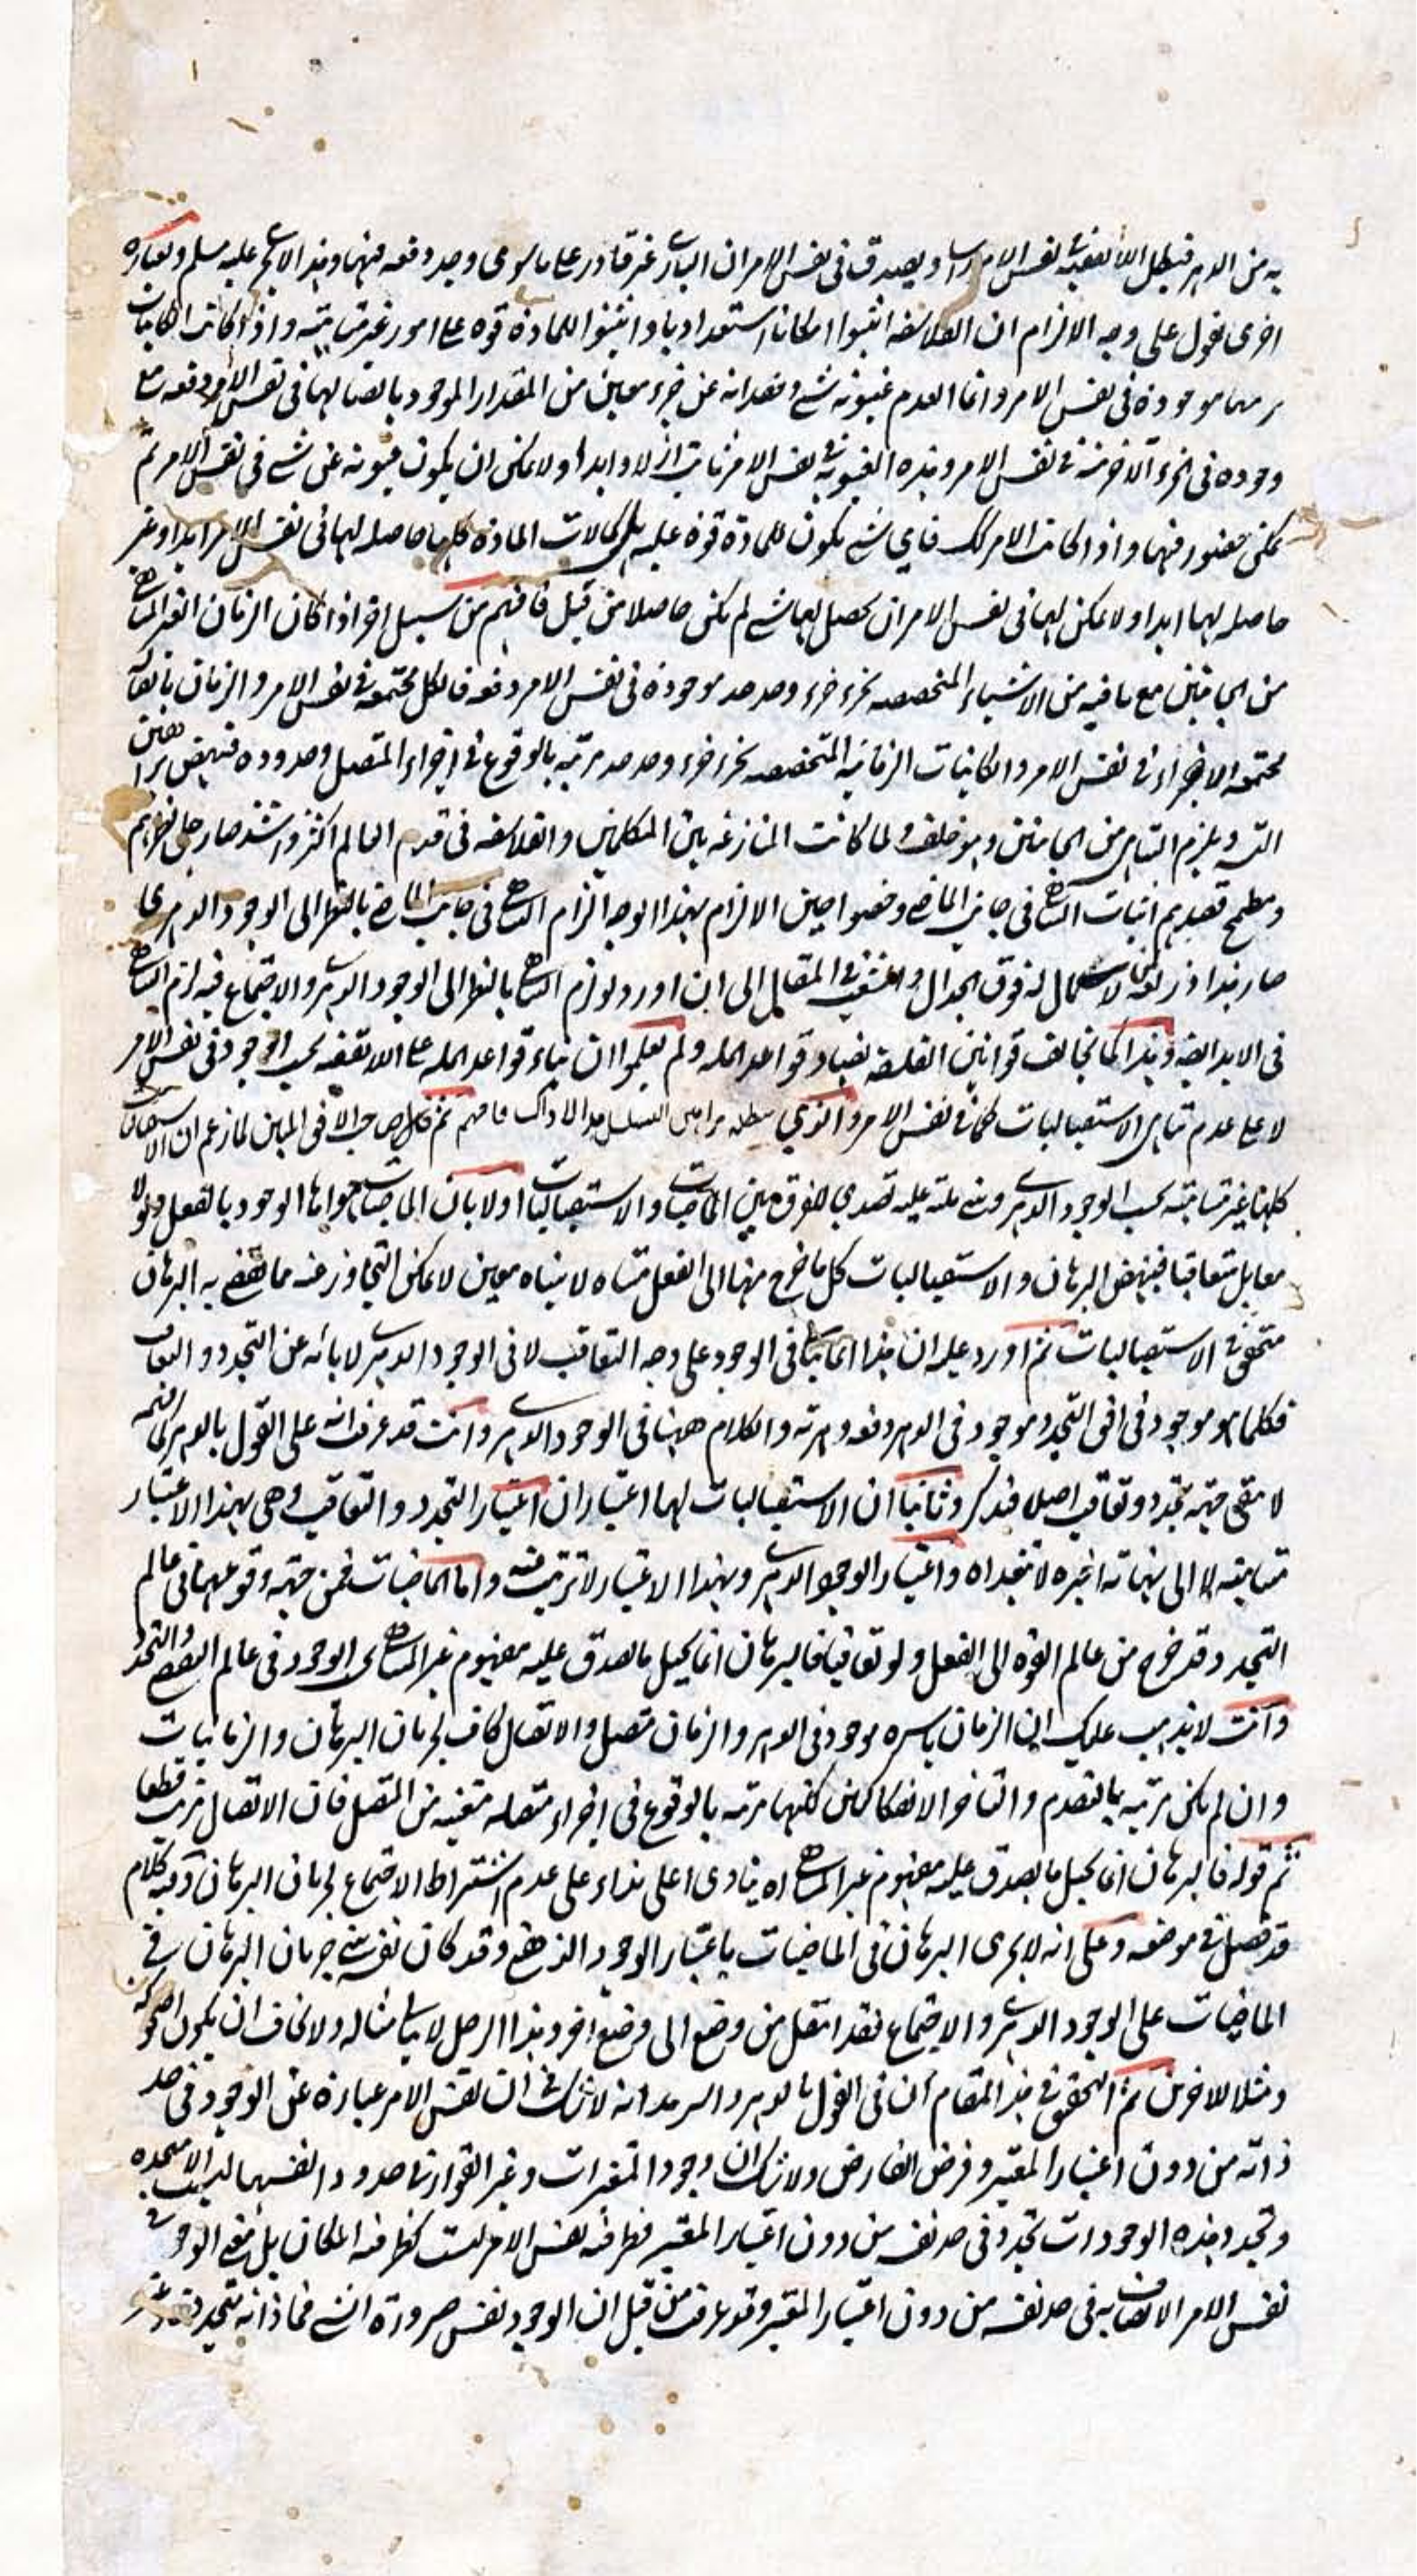 به من الدهر فيبطل اللاتقفية نفس الامر راسا ويصدق في نفس الامر ان الباري غير قادر على ما سوى وجد دفعة فيها وهذا الا عليه مسلم وبعبارة
اخرى نقول على وجه الالزام ان الفلاسفة اثبتوا امكانا استعداديا واثبتوا للمادة قوة على امور غير متناهية واذا كانت الكائنات
موجودة في نفس الامر وانما العدم غيبوبة شيء وفقدانه عن جزء معين من المقدار الموجود باتصالها في نفس الامر دفعة مع
وجوده في الجزء الآخر منه في نفس الامر وهذه الغيبوبة في نفس الامر ثابت ازلا وابدا ولا يمكن ان يكون غيبوبة عن شيء في نفس الامر ثم
يمكن حضور فيها واذا كانت الامر كك فاي شيء يكون للمادة قوة عليه بل كمالات المادة كلها حاصلة لها في نفس الامر ابدا وغير
حاصلة لها ابدا ولا يمكن لها في نفس الامر ان يحصل لها شيء لم يكن حاصلا من قبل فافهم من سبيل اخر اذا كان الزمان الغير المتناهي
من الجانبين مع ما فيه من الاشياء المتخصصة بجزء جزء وحد حد موجودة في نفس الامر دفعة فالكل مجتمعة في نفس الامر والزمان باتصاله
مجتمعة الاجزاء في نفس الامر والكائنات الزمانية المتخصصة بجزء جزء وحد حد مرتبة بالوقوع في اجزاء المتصل وحدوده فينهض براهين
التسـ ويلزم التناهي من الجانبين وهو خلف ولما كانت المنازعة بين المتكلمين والفلاسفة في قدم العالم اكثر واشد صار جل نظرهم
ومطمح قصدهم اثبات التناهي في جانب الماضي وخصوا حين الالزام بهذا الوجه الزام التناهي في جانب الماضي بالنظر الى الوجود الدهري
صار هذا ذريعة لمن لا استكمال له فوق الجدال والشغب في المقال الى ان اورد ولو لزم التناهي بالنظر الى الوجود الدهري والاجتماع فيه لزم التناهي
في الابد ايضا وهذا كما يخالف قوانين الفلسفة يضاد قواعد الملة ولم يعلموا ان بناء قواعد الملة على اللاتقفية بحسب الوجود في نفس الامر
لا على عدم تناهي الاستقباليات كما في نفس الامر والذي يبطله براهين التسلسل هو هذا لا ذاك فافهم ثم قال صاحب الافق المبين لما زعم ان الاستقباليات
كلها غير متناهية بحسب الوجود الدهري وشنع عليه تصدى للفرق بين الماضيات والاستقباليات اولا بان الماضيات حواها الوجود بالفعل ولو لا
معا بل متعاقبا فينهض البرهان والاستقباليات كل ما خرج منها الى الفعل متناه لا بتناه معين لا يمكن التجاوز عنه فما يقضي به البرهان
متحقق في الاستقباليات ثم اورد عليه ان هذا انما يتأتى في الوجود على وجه التعاقب لا في الوجود الدهري لابائه عن التجدد والتعاقب
فكلما هو موجود في افق التجدد موجود في الدهر دفعة ومرة والكلام ههنا في الوجود الدهري وانت قد عرفت انه على القول بالدهر
لا يبقى جهة تجدد وتعاقب اصلا فتذكر وثانيا ان الاستقباليات لها اعتباران اعتبار التجدد والتعاقب وهي بهذا الاعتبار
متناهية لا الى نهاية اخيرة لا تتعداه واعتبار الوجود الدهري وبهذا الاعتبار لا ترتب فيه واما الماضيات فمن جهة وقوعها في عالم
التجدد قد خرج من عالم القوة الى الفعل ولو تعاقبا فالبرهان انما يحيل ما صدق عليه مفهوم غير المتناهي الوجود في عالم التقضي والتجدد
وانت لا يذهب عليك ان الزمان باسره موجود في الدهر والزمان متصل والاتصال كاف لجريان البرهان والزمانيات
وان لم يكن مرتبة بالتقدم والتاخر الانفكاكيين لكنها مرتبة بالوقوع في اجزاء متصلة متعينة من المتصل فان الاتصال ترتب قطعا
ثم قوله فالبرهان انما يحيل ما يصدق عليه مفهوم غير المتناهي اه ينادي اعلى نداء على عدم اشتراط الاجتماع لجريان البرهان وفيه كلام
قد فصل في موضعه وعلى انه لا يجري البرهان في الماضيات باعتبار الوجود الذهني وقد كان نفسه جريان البرهان في
الماضيات على الوجود الدهري والاجتماع فقد انتقل من وضع الى وضع اخر وهذا الرجل لا يبالي بامثاله ولا يخاف ان يكون اضحوكة
ومثلا للآخرين ثم التحقيق في هذا المقام ان في القول بالدهر والسرمد انه لا شك في ان نفس الامر عبارة عن الوجود في حد
ذاته من دون اعتبار المعتبر وفرض الفارض ولا شك ان وجود المتغيرات وغير القوارة في حدود انفسها ليست الا متجددة
وتجدد هذه الوجودات تجدد في حد نفسه من دون اعتبار المعتبر فظرفية نفس الامر ليست كظرفية المكان بل معنى الوجود في
نفس الامر الاتصاف به في حد نفسه من دون اعتبار المعتبر وقد عرفت من قبل ان الوجود نفس صيرورة الشيء فما ذاته متجددة